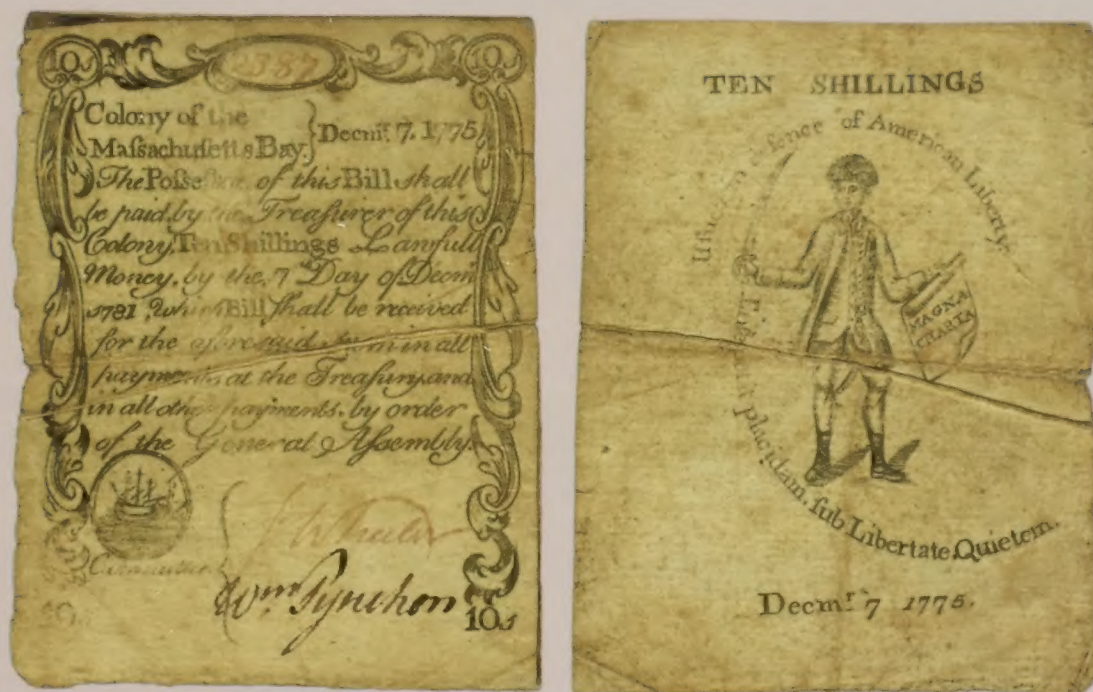 10s 2387 10s
Colony of the
Maſsachuſetts Bay. } Decmr. 7. 1775
The Poſseſsor of this Bill shall
be paid by the Treaſurer of this
Colony, Ten Shillings Lawfull
Money, by the 7th Day of Decmr
1781, which Bill ſhall be received
for the aforesaid sum in all
payments at the Treaſury, and
in all other payments. by order
of the General Aſsembly.
Committee
Wm Pynchon
10s
TEN SHILLINGS
Iſſued in defence of American Liberty.
placidam. ſub Libertate Quietem.
MAGNA
CHARTA
Decmr. 7 1775.